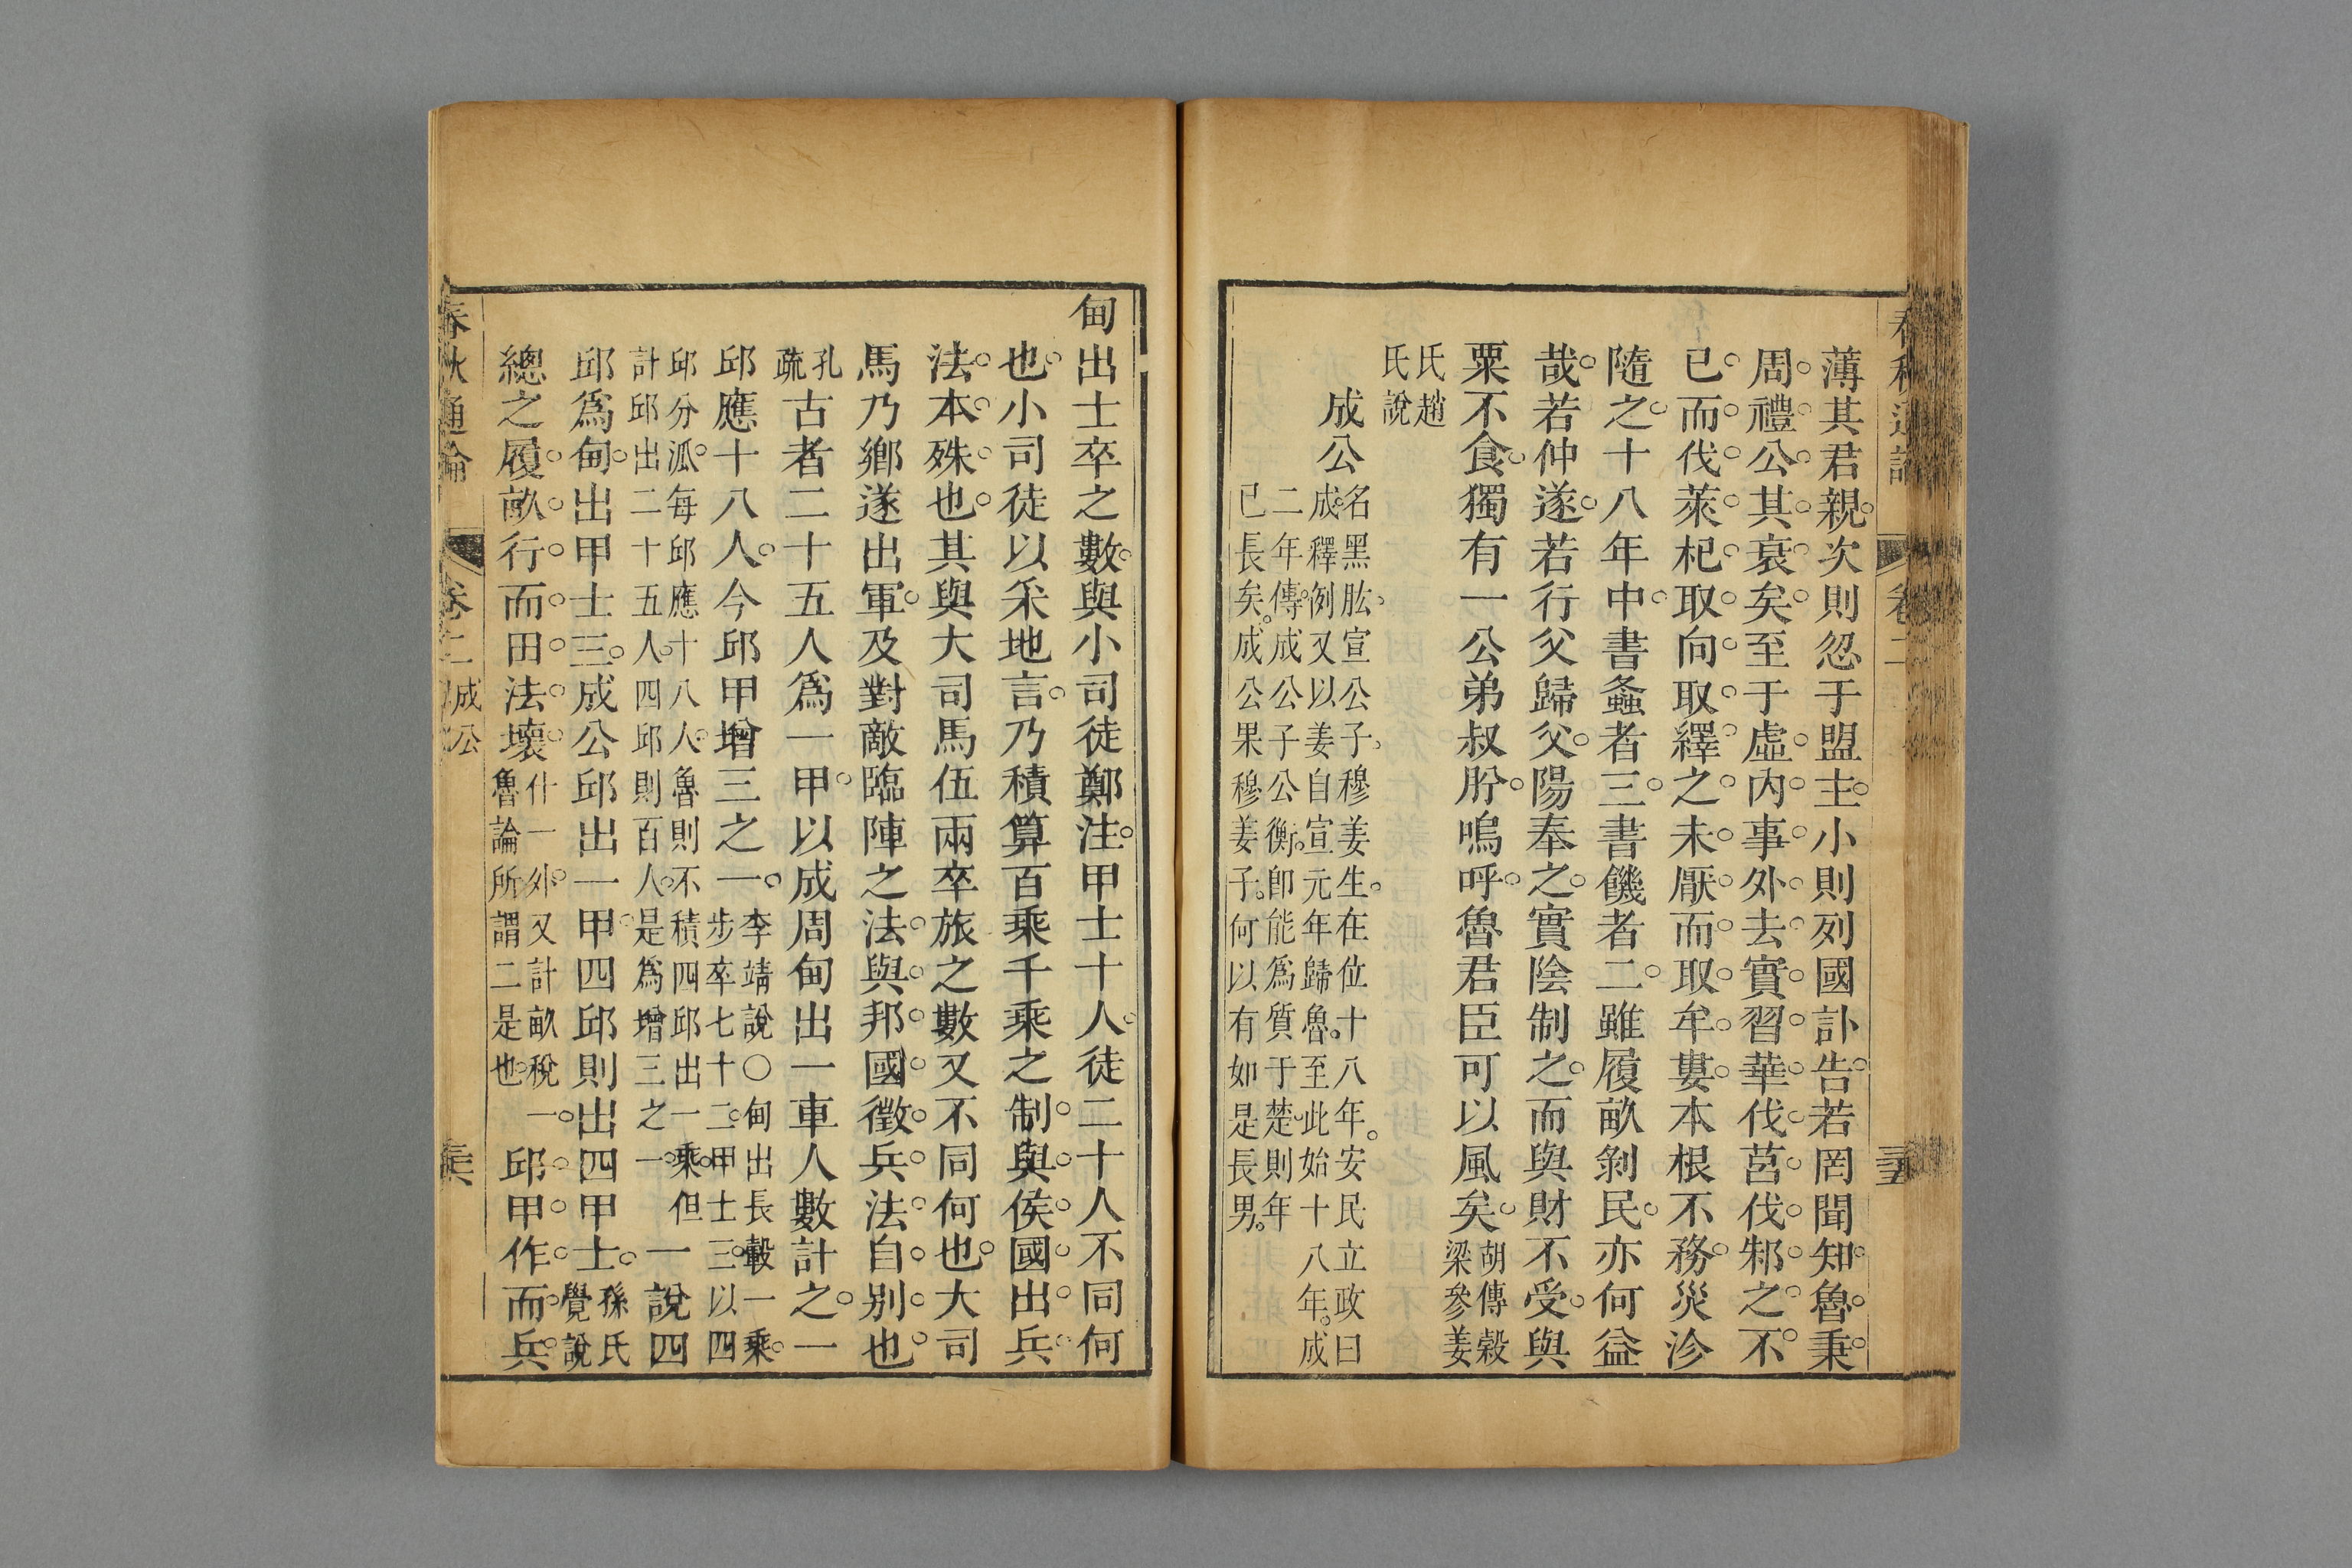 薄其君親次則忽于盟主小則列國訃告若罔聞知魯秉
周禮公其衰矣至于虛內事外去實習華伐莒伐邾之不
已而伐萊杞取向取繹之未厭而取牟婁本根不務災沴
隨之十八年中書螽者三書饑者二雖履畝剝民亦何益
哉若仲遂若行父歸父陽奉之實陰制之而與財不受與
粟不食獨有一公弟叔肸嗚呼魯君臣可以風矣胡傳榖
梁參姜
氏趙
氏說
成公名黑肱宣公子穆姜生在位十八年安民立政曰
成釋例又以姜自宣元年歸魯至此始十八年成
二年傳成公子公衡卽能為質于楚則年
已長矣成公果穆姜子何以有如是長男
甸出士卒之數與小司徒鄭注甲士十人徒二十人不同何
也小司徒以釆地言乃積算百乘千乘之制與侯國出兵
法本殊也其與大司馬伍兩卒旅之數又不同何也大司
馬乃鄉遂出軍及對敵臨陣之法與邦國徵兵法自別也
孔
疏古者二十五人爲一甲以成周甸出一車人數計之一
邱應十八人今邱甲增三之一李靖說〇甸出長轂一乘
步卒七十二甲士三以四
邱分泒每邱應十八人魯則不積四邱出一乘但
計邱出二十五人四邱則百人是爲增三之一一說四
邱爲甸出甲士三成公邱出一甲四邱則出四甲士孫氏
覺說
總之履畝行而田法壞什一外又計畝稅一
魯論所謂二是也邱甲作而兵
春秋通論
卷二
成公